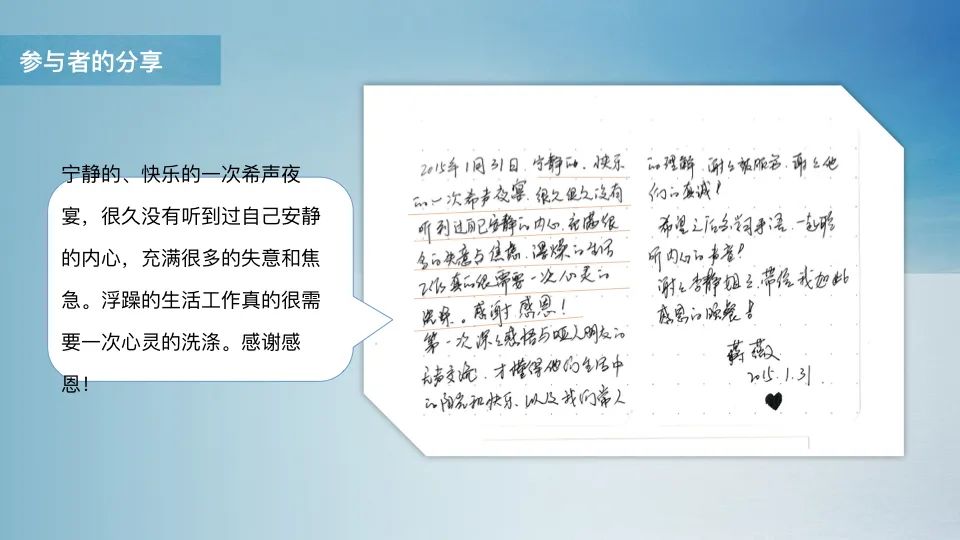 参与者的分享
宁静的、快乐的一次希声夜
宴，很久没有听到过自己安静
的内心，充满很多的失意和焦
急。浮躁的生活工作真的很需
要一次心灵的洗涤。感谢感
恩！
2015年1月31日，宁静的、快乐
的一次希声夜宴，很久很久没有
听到过自己安静的内心，充满很
多的失意与焦虑，浮躁的生活
工作真的很需要一次心灵的
洗涤。感谢！感恩！
第一次深上感悟与哑人朋友的
无声交流，才懂得他们的生活中
的阳光和快乐，以及我们常人
的理解，谢谢，谢上他
们的真诚！
希望之后多学习手语，一起聆
听内心的声音！
谢上李静姐上带给我如此
感恩的晚餐！
薇
2015.1.31